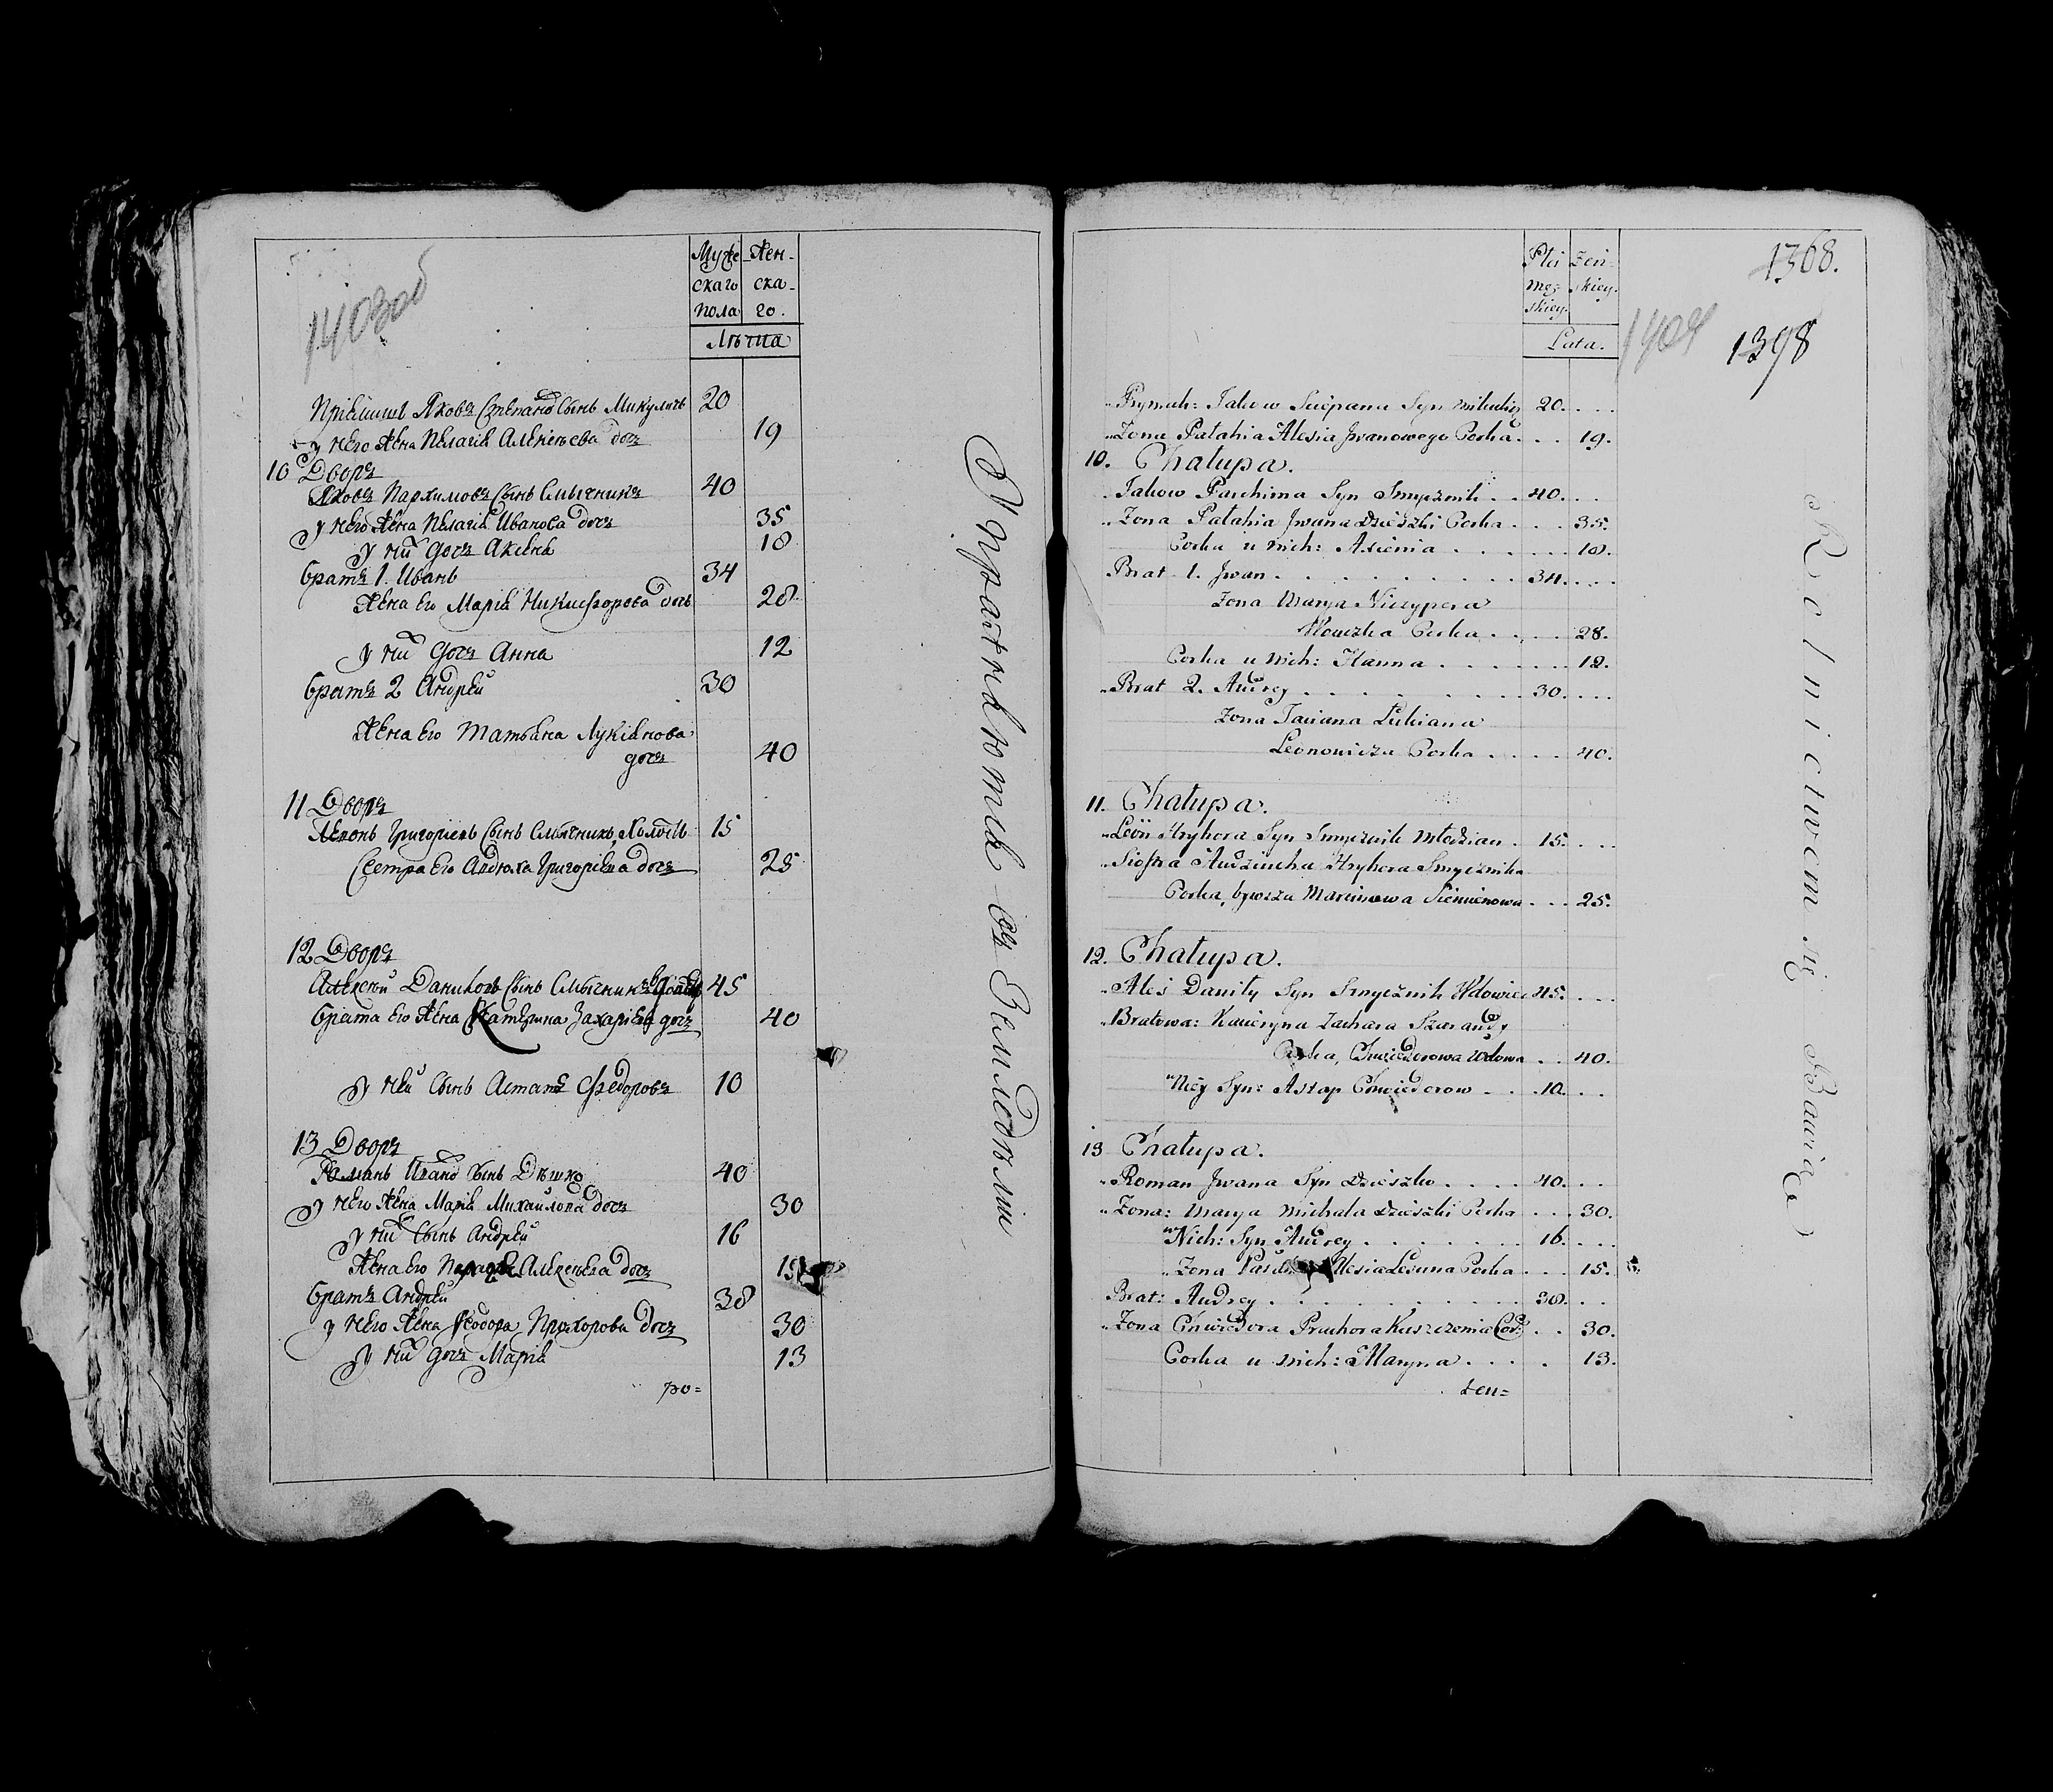 1403об
Муже Жен-
скаго ска-
пола го.
Лѣта
Пріймишъ Яковъ Степановъ Сынъ Микуличъ 20
у него жена Пелагія Алексѣева дочъ 19
10 Дворъ
Яковъ Пархимовъ Сынъ Смычникъ 40
у него жена Пелагія Иванова дочъ 35
у ни дочъ Аксенія 18
братъ 1. Иванъ 34
жена его Марія Никифорова дочъ 28
у ни дочъ Анна 12
братъ 2 Андрей 30
жена его Татьяна Лукіянова
дочъ 40
11 Дворъ
Леонъ Григоріевъ Сынъ Смычникъ, Холостъ 15
Сестра его Авдюха Григоріева дочъ 25
12 Дворъ
Алексѣй Даниловъ Сынъ Смычникъ Вдовецъ 45
брата его жена Катерина Захаріева дочъ 40
у ней Сынъ Астапъ Федоровъ 10
13 Дворъ
Романъ Иванов Сынъ Дѣшко 40
у него жена Марія Михайлова дочъ 30
у ни Сынъ Андрей 16
жена его Алексеева дочъ 15
братъ Андрей 38
у него жена Феодора Прохорова дочъ 30
у ни дочъ Марія 13
ро=
Упражняются въ Земледѣліи
1368.
1404
1398
Płci żeń-
męz- skiey.
skiey.
Lata.
Prymak: Jakow Sciepana Syn Mikulicz 20. . . .
Zona Pałahia Alesia Jwanowego Corka . . . 19.
10. Chałupa.
Jakow Parchima Syn Smycznik . . 40. . .
Zona Pałahia Jwana Dzieszki Corka . . . 35.
Corka u Nich: Axienia . . . . . . . 18.
Brat 1. Jwan . . . . . . . . 34. . . .
Zona Marya Niczypora
Corka . . . . 28.
Corka u Nich: Hanna . . . . . . . 12.
Brat 2. Andrey . . . . . . . . 30. . . .
Zona Taciana Łukiana
Leonowicza Corka . . . . 40.
11. Chałupa.
Leon Hryhora Syn Smycznik Młodzian . 15. . . .
Siostra Audziucha Hryhora Smycznika
Corka, bywsza Marcinowa Siemienowa . . . 25.
12. Chałupa.
Aleś Daniły Syn Smycznik Wdowiec 45. . . .
Bratowa: Kacieryna Zachara Szarandy
Corka, Chwiedorowa Wdowa . . 40.
u Niey Syn: Astap Chwiedorow . . . 10. . .
13 Chałupa.
Roman Jwana Syn Dzieszko . . . . 40. . .
Zona: Marya Michała Dzieszki Corka . . . 30.
u Nich: Syn Andrey . . . . . . . 16. . . .
Zona Alesia Corka . . . 15.
Brat: Andrey . . . . . . . . . 38. . .
Zona Chwiedora Pruchora Kuszczenia Cor: . . 30.
Corka u Nich: Maryna . . . . 13.
ten=
Rolnictwem się Bawią